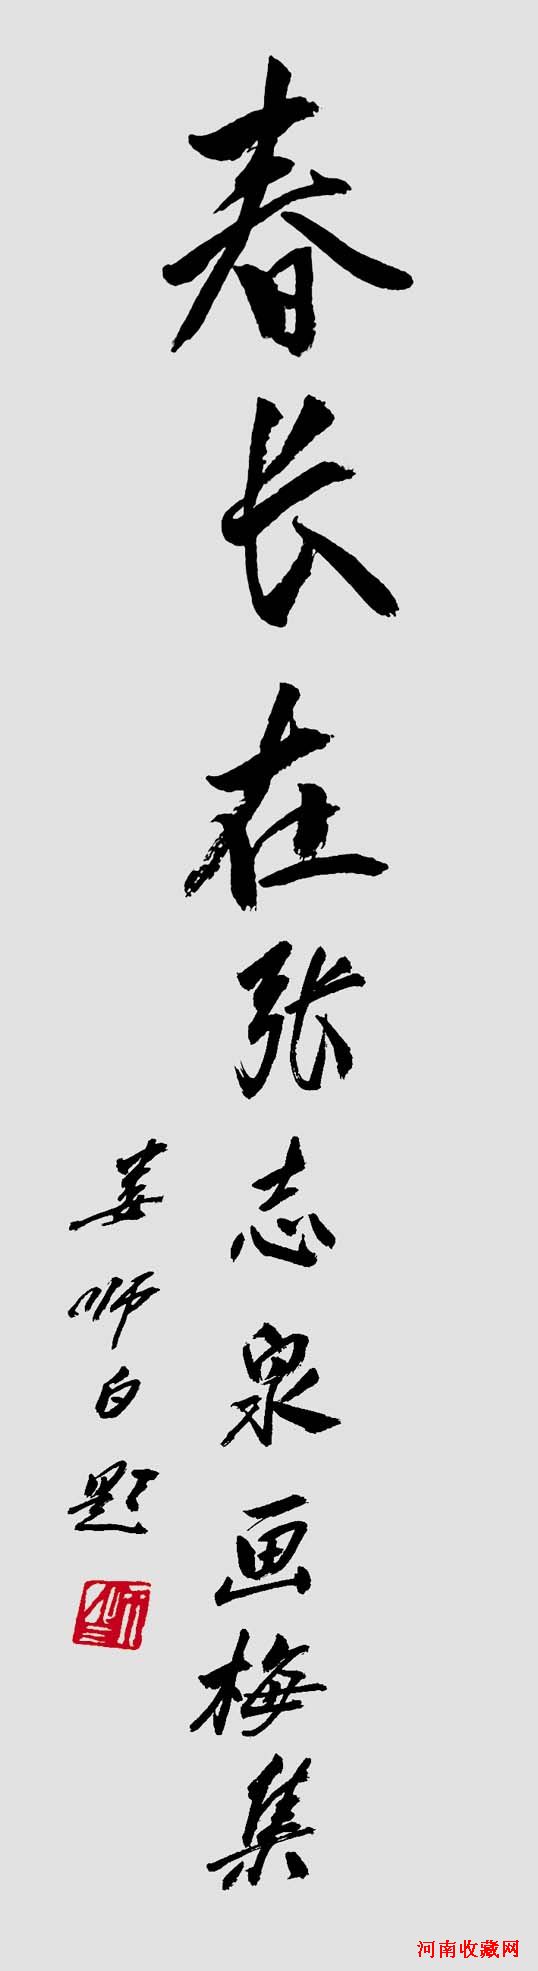 春长在张志泉画梅集
娄师白题
师白
河南收藏网